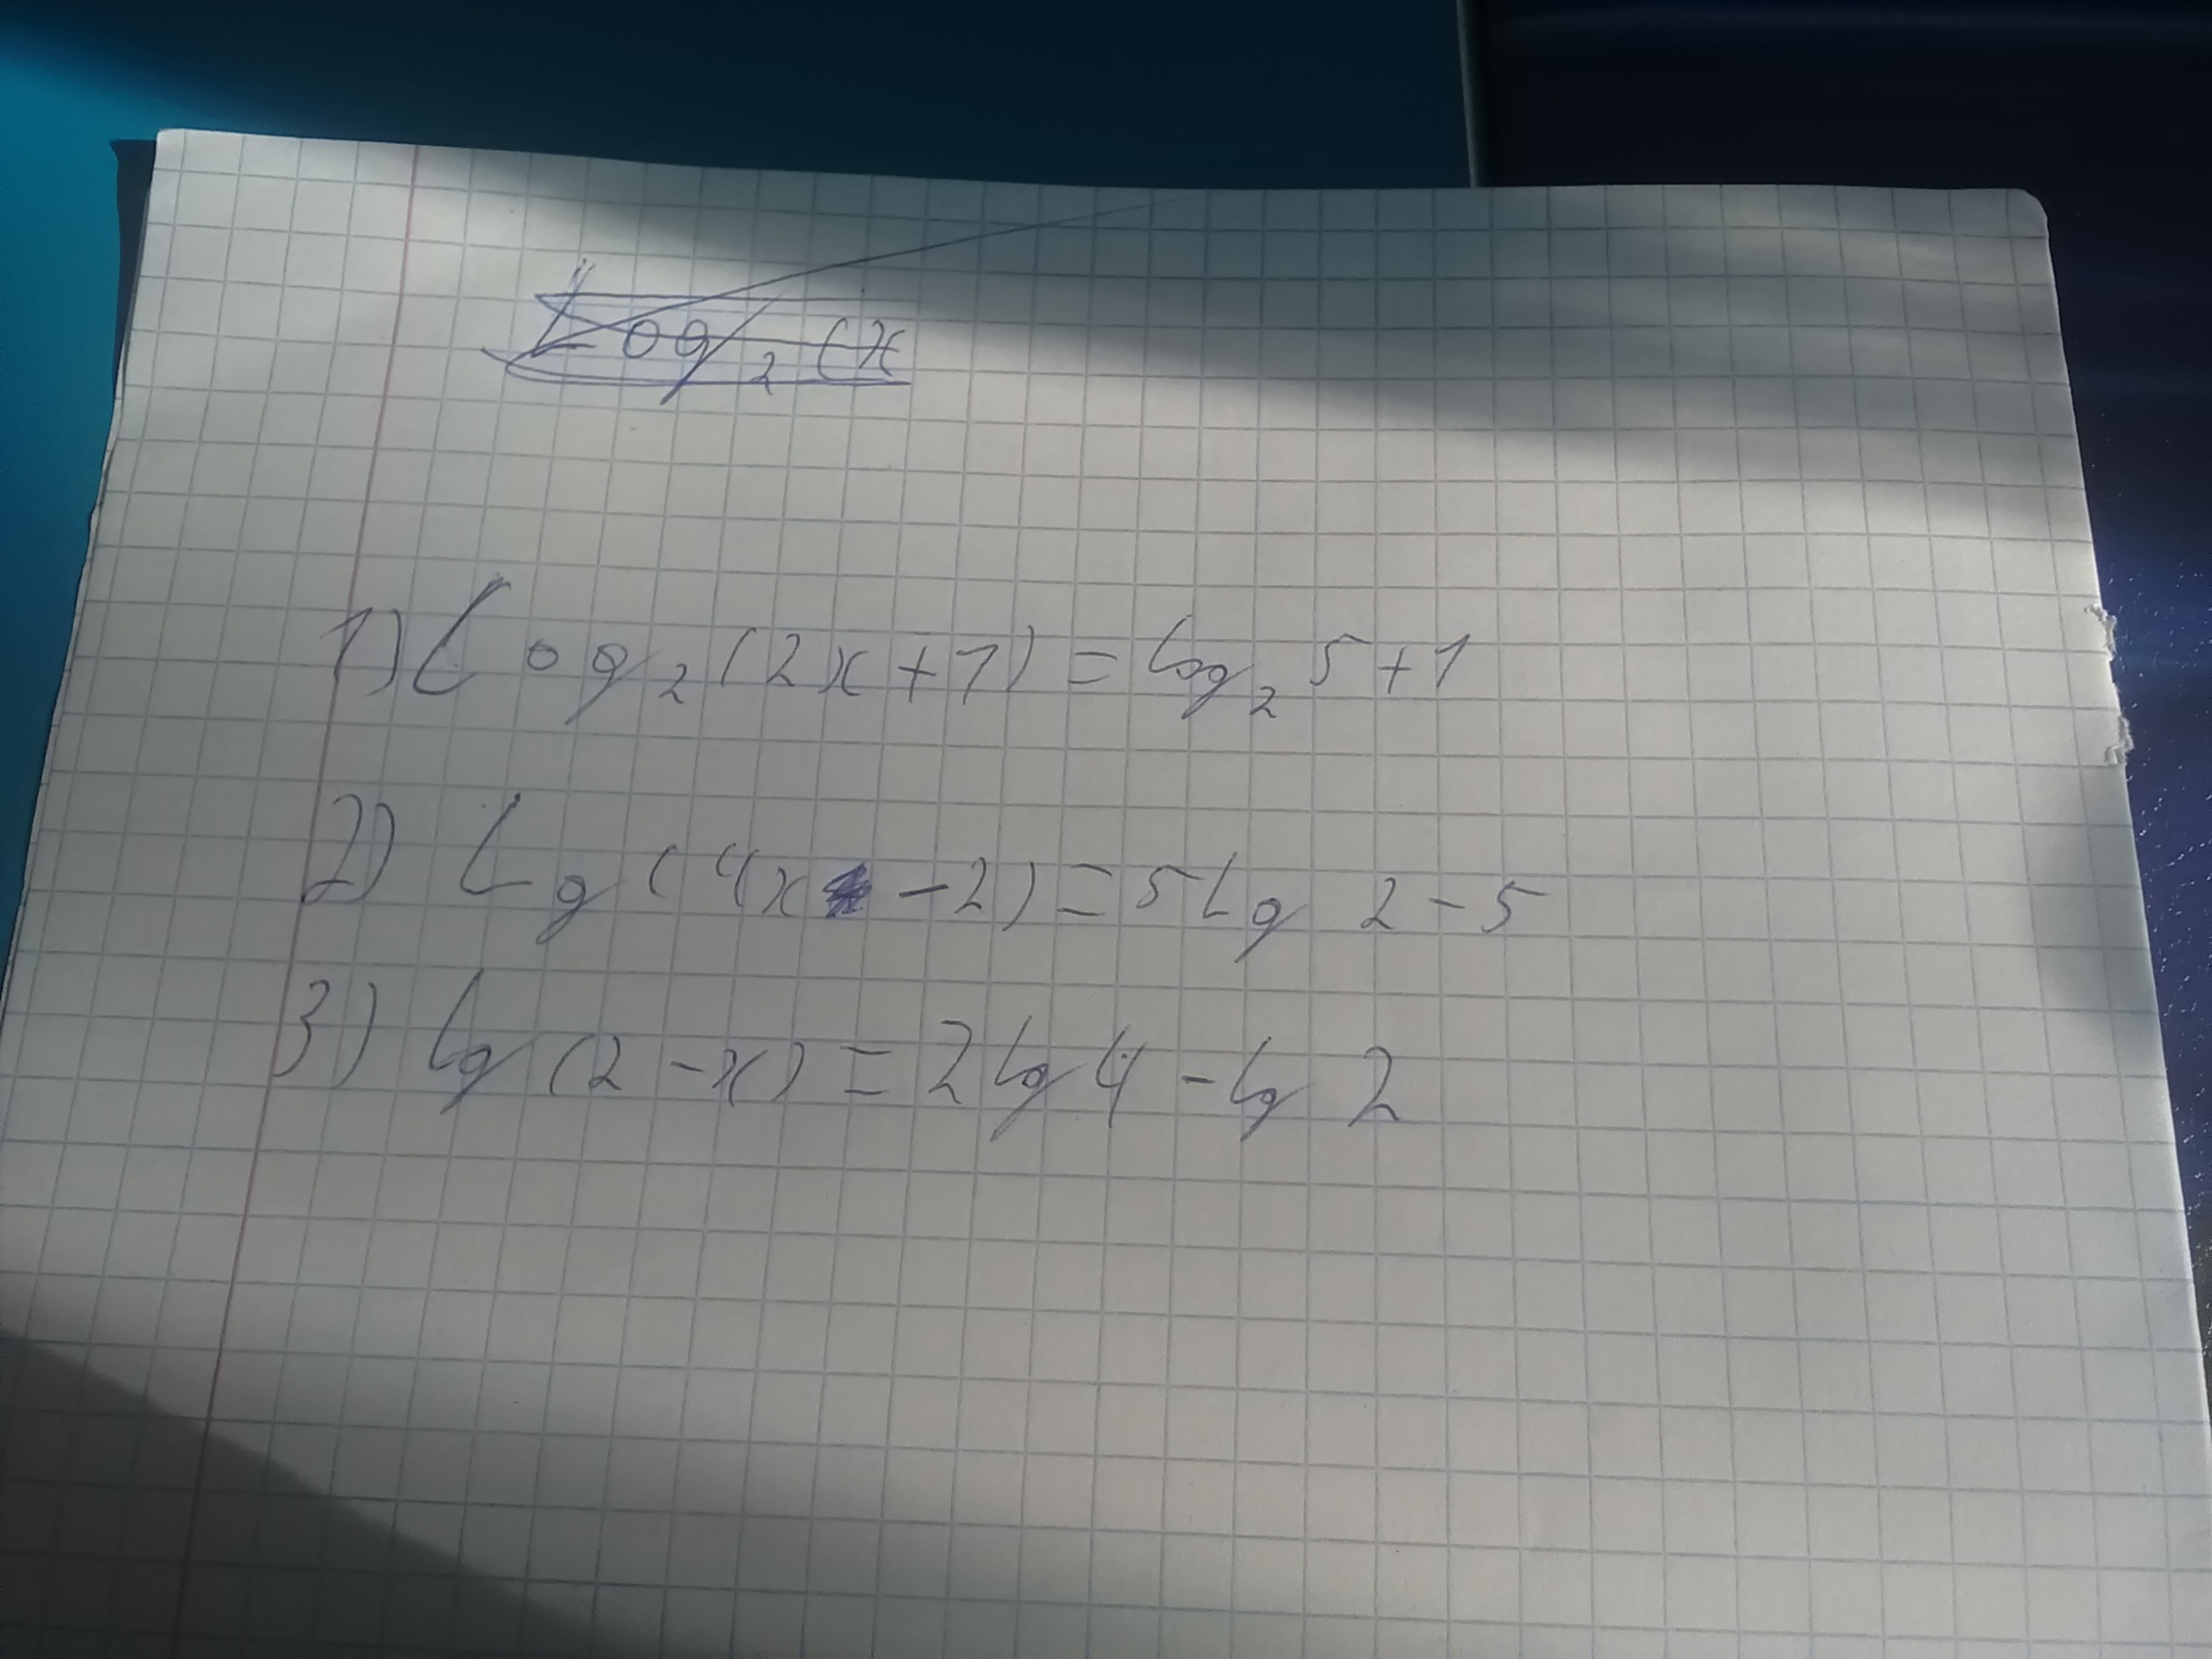 Log₂(x
1) Log₂(2x+7)=log₂5+1
2) Lg(4x-2)=5Lg 2-5
3) lg(2-x)=2lg4-lg 2